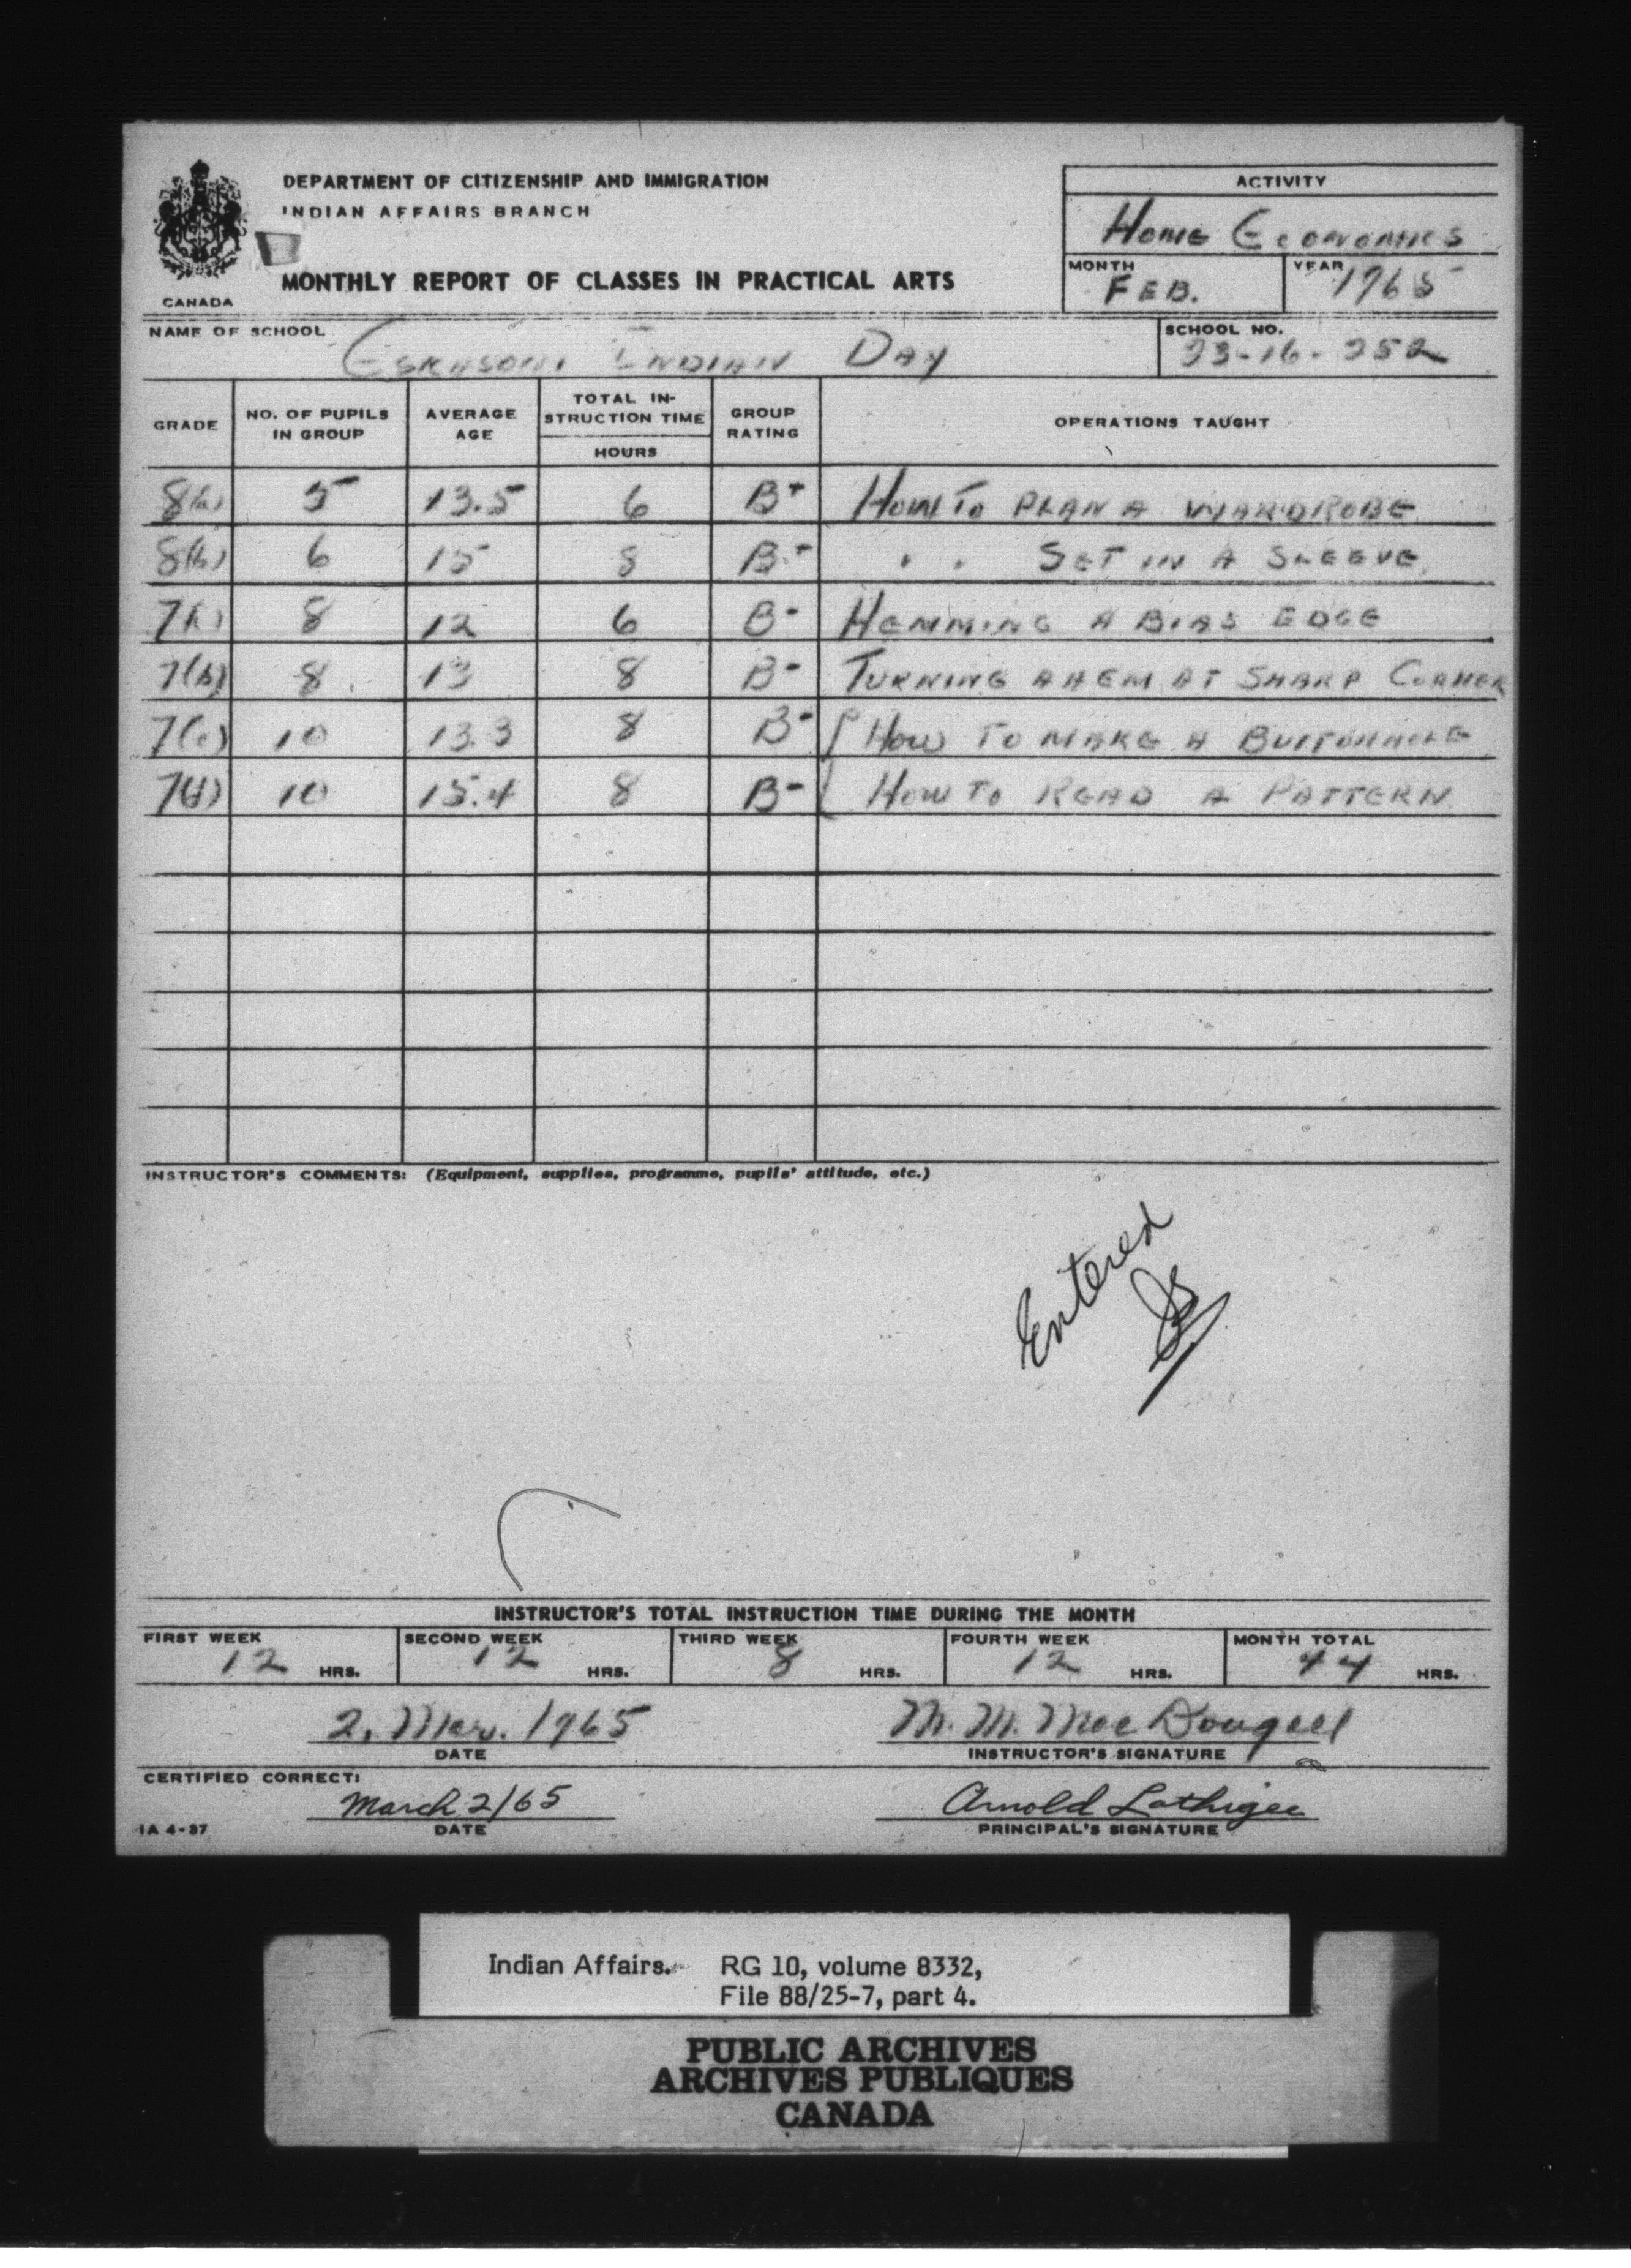 DEPARTMENT OF CITIZENSHIP AND IMMIGRATION
INDIAN AFFAIRS BRANCH
MONTHLY REPORT OF CLASSES IN PRACTICAL ARTS
CANADA
ACTIVITY
HOME ECONOMICS
MONTH YEAR
FEB. 1965
NAME OF SCHOOL SCHOOL NO.
ESKASONI INDIAN DAY 23-16-252
GRADE NO. OF PUPILS IN GROUP AVERAGE AGE TOTAL IN-STRUCTION TIME HOURS GROUP RATING OPERATIONS TAUGHT
8(a) 5 13.5 6 B+ HOW TO PLAN A WARDROBE
8(b) 6 15 8 B+ " " SET IN A SLEEVE.
7(a) 8 12 6 B- HEMMING A BIAS EDGE
7(b) 8 13 8 B- TURNING A HEM AT SHARP CORNER
7(c) 10 13.3 8 B- HOW TO MAKE A BUTTONHOLE
7(d) 10 15.4 8 B- HOW TO READ A PATTERN.
INSTRUCTOR'S COMMENTS: (Equipment, supplies, programme, pupils' attitude, etc.)
Entered
INSTRUCTOR'S TOTAL INSTRUCTION TIME DURING THE MONTH
FIRST WEEK SECOND WEEK THIRD WEEK FOURTH WEEK MONTH TOTAL
12 HRS. 12 HRS. 8 HRS. 12 HRS. 44 HRS.
2, Mar. 1965 M. M. MacDougall
DATE INSTRUCTOR'S SIGNATURE
CERTIFIED CORRECT:
March 2/65 Arnold Lathigee
IA 4-37 DATE PRINCIPAL'S SIGNATURE
Indian Affairs. RG 10, volume 8332,
File 88/25-7, part 4.
PUBLIC ARCHIVES
ARCHIVES PUBLIQUES
CANADA